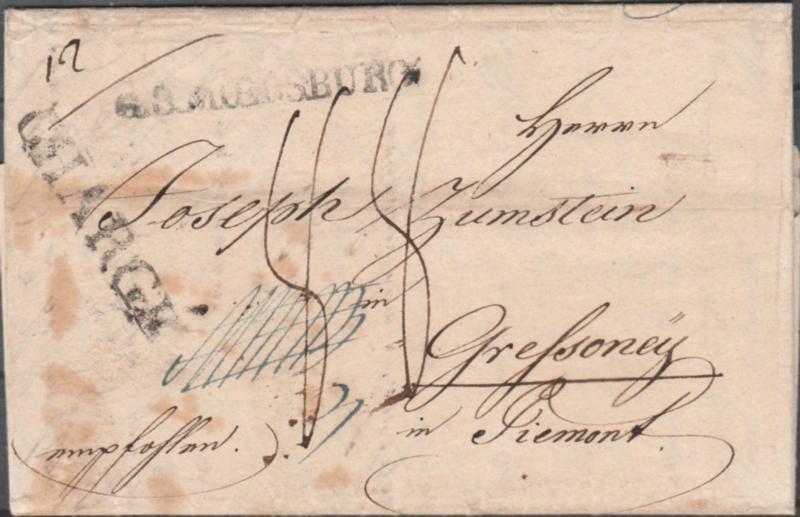 12
R.3. AUGSBURG
CHARGÉ
Herrn
Joseph Zumstein
in
Gressoney
in Piemont.
empfohlen.